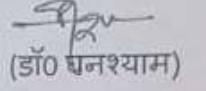 (डॉ0 घनश्याम)